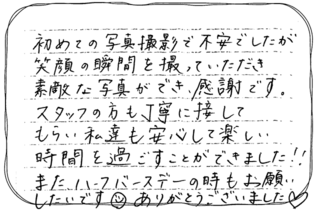 初めての写真撮影で不安でしたが
笑顔の瞬間を撮っていただき
素敵な写真ができ、感謝です。
スタッフの方も丁寧に接して
もらい私達も安心して楽しい
時間を過ごすことができました!!
また、ハーフバースデーの時もお願い
したいです☺ありがとうございました♡